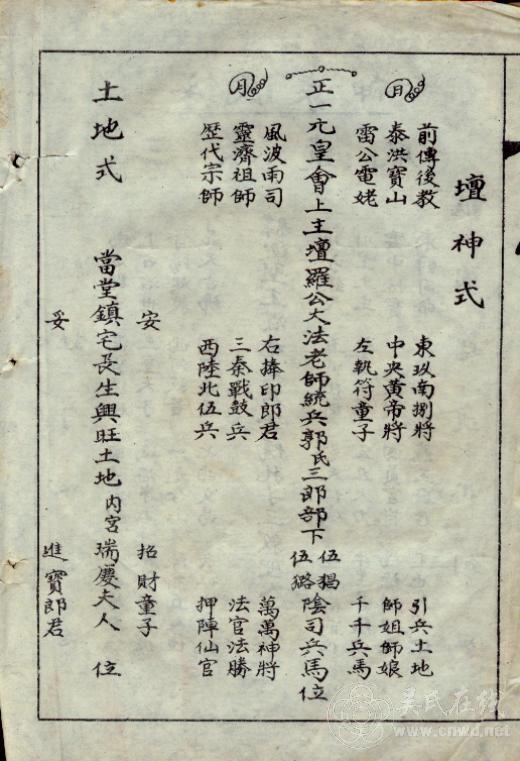 壇神式
前傳後教 東玖南捌將 引兵土地
日 泰洪寶山 中央黃帝將 師姐師娘
雷公電姥 左執符童子 千千兵馬
正一元皇會上主壇羅公大法老師統兵郭氏三郎部下伍猖伍路陰司兵馬位
風波雨司 右捧印郎君 萬萬神將
月 靈濟祖師 三秦戰鼓兵 法官法勝
歷代宗師 西陸北伍兵 押陣仙官
安 招財童子
土地式 當堂鎮宅長生興旺土地內宮瑞慶夫人 位
妥 進寶郎君
吳氏在線
www.cnwd.net